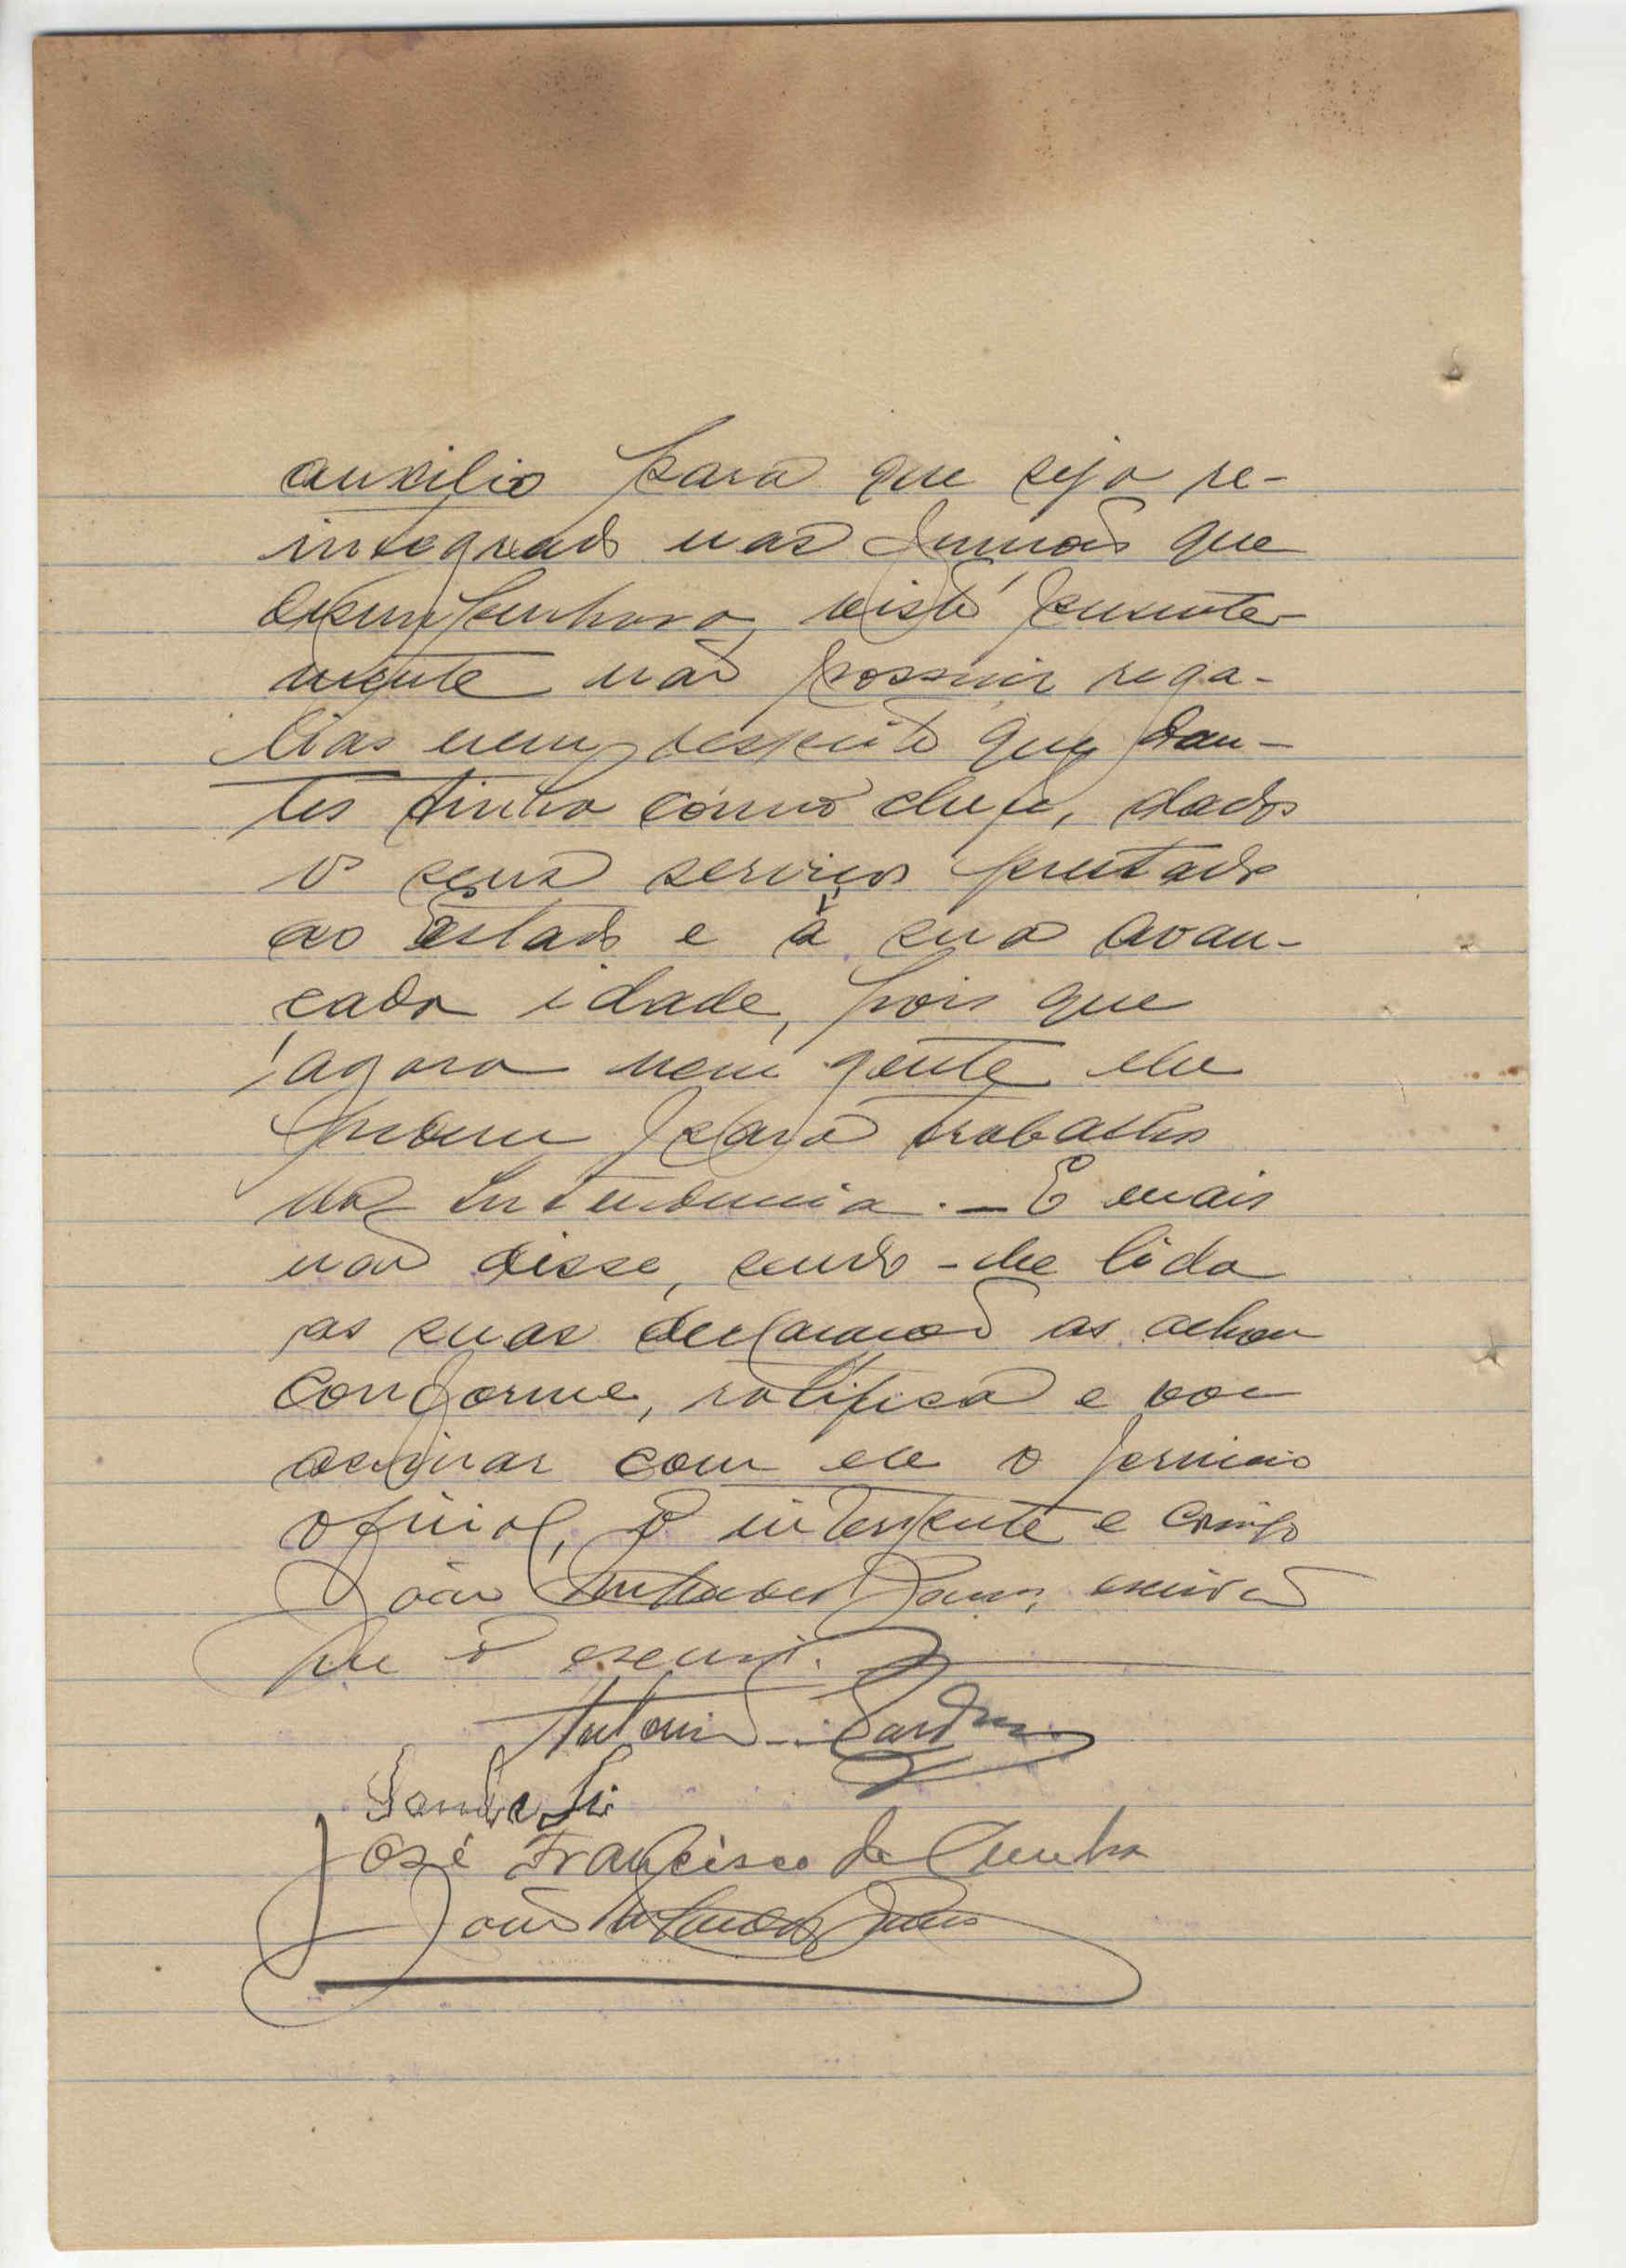 auxilio para que seja re-
integrado nas funções que
desempenhava, visto presente-
mente não possuir rega-
lias nem respeito que dan-
tes tinha como chefe, dados
os seus serviços prestados
ao Estado e à sua avan-
çada idade, pois que
agora nem gente lhe
pedem para trabalhos
da Intendencia. — E mais
não disse, sendo-lhe lida
as suas declarações as achou
conforme, ratifica e vai
assinar com ele o
oficial, o interprete e comigo
João, escrivão
que o escrevi.
Antonio
José Francisco da Cunha
João